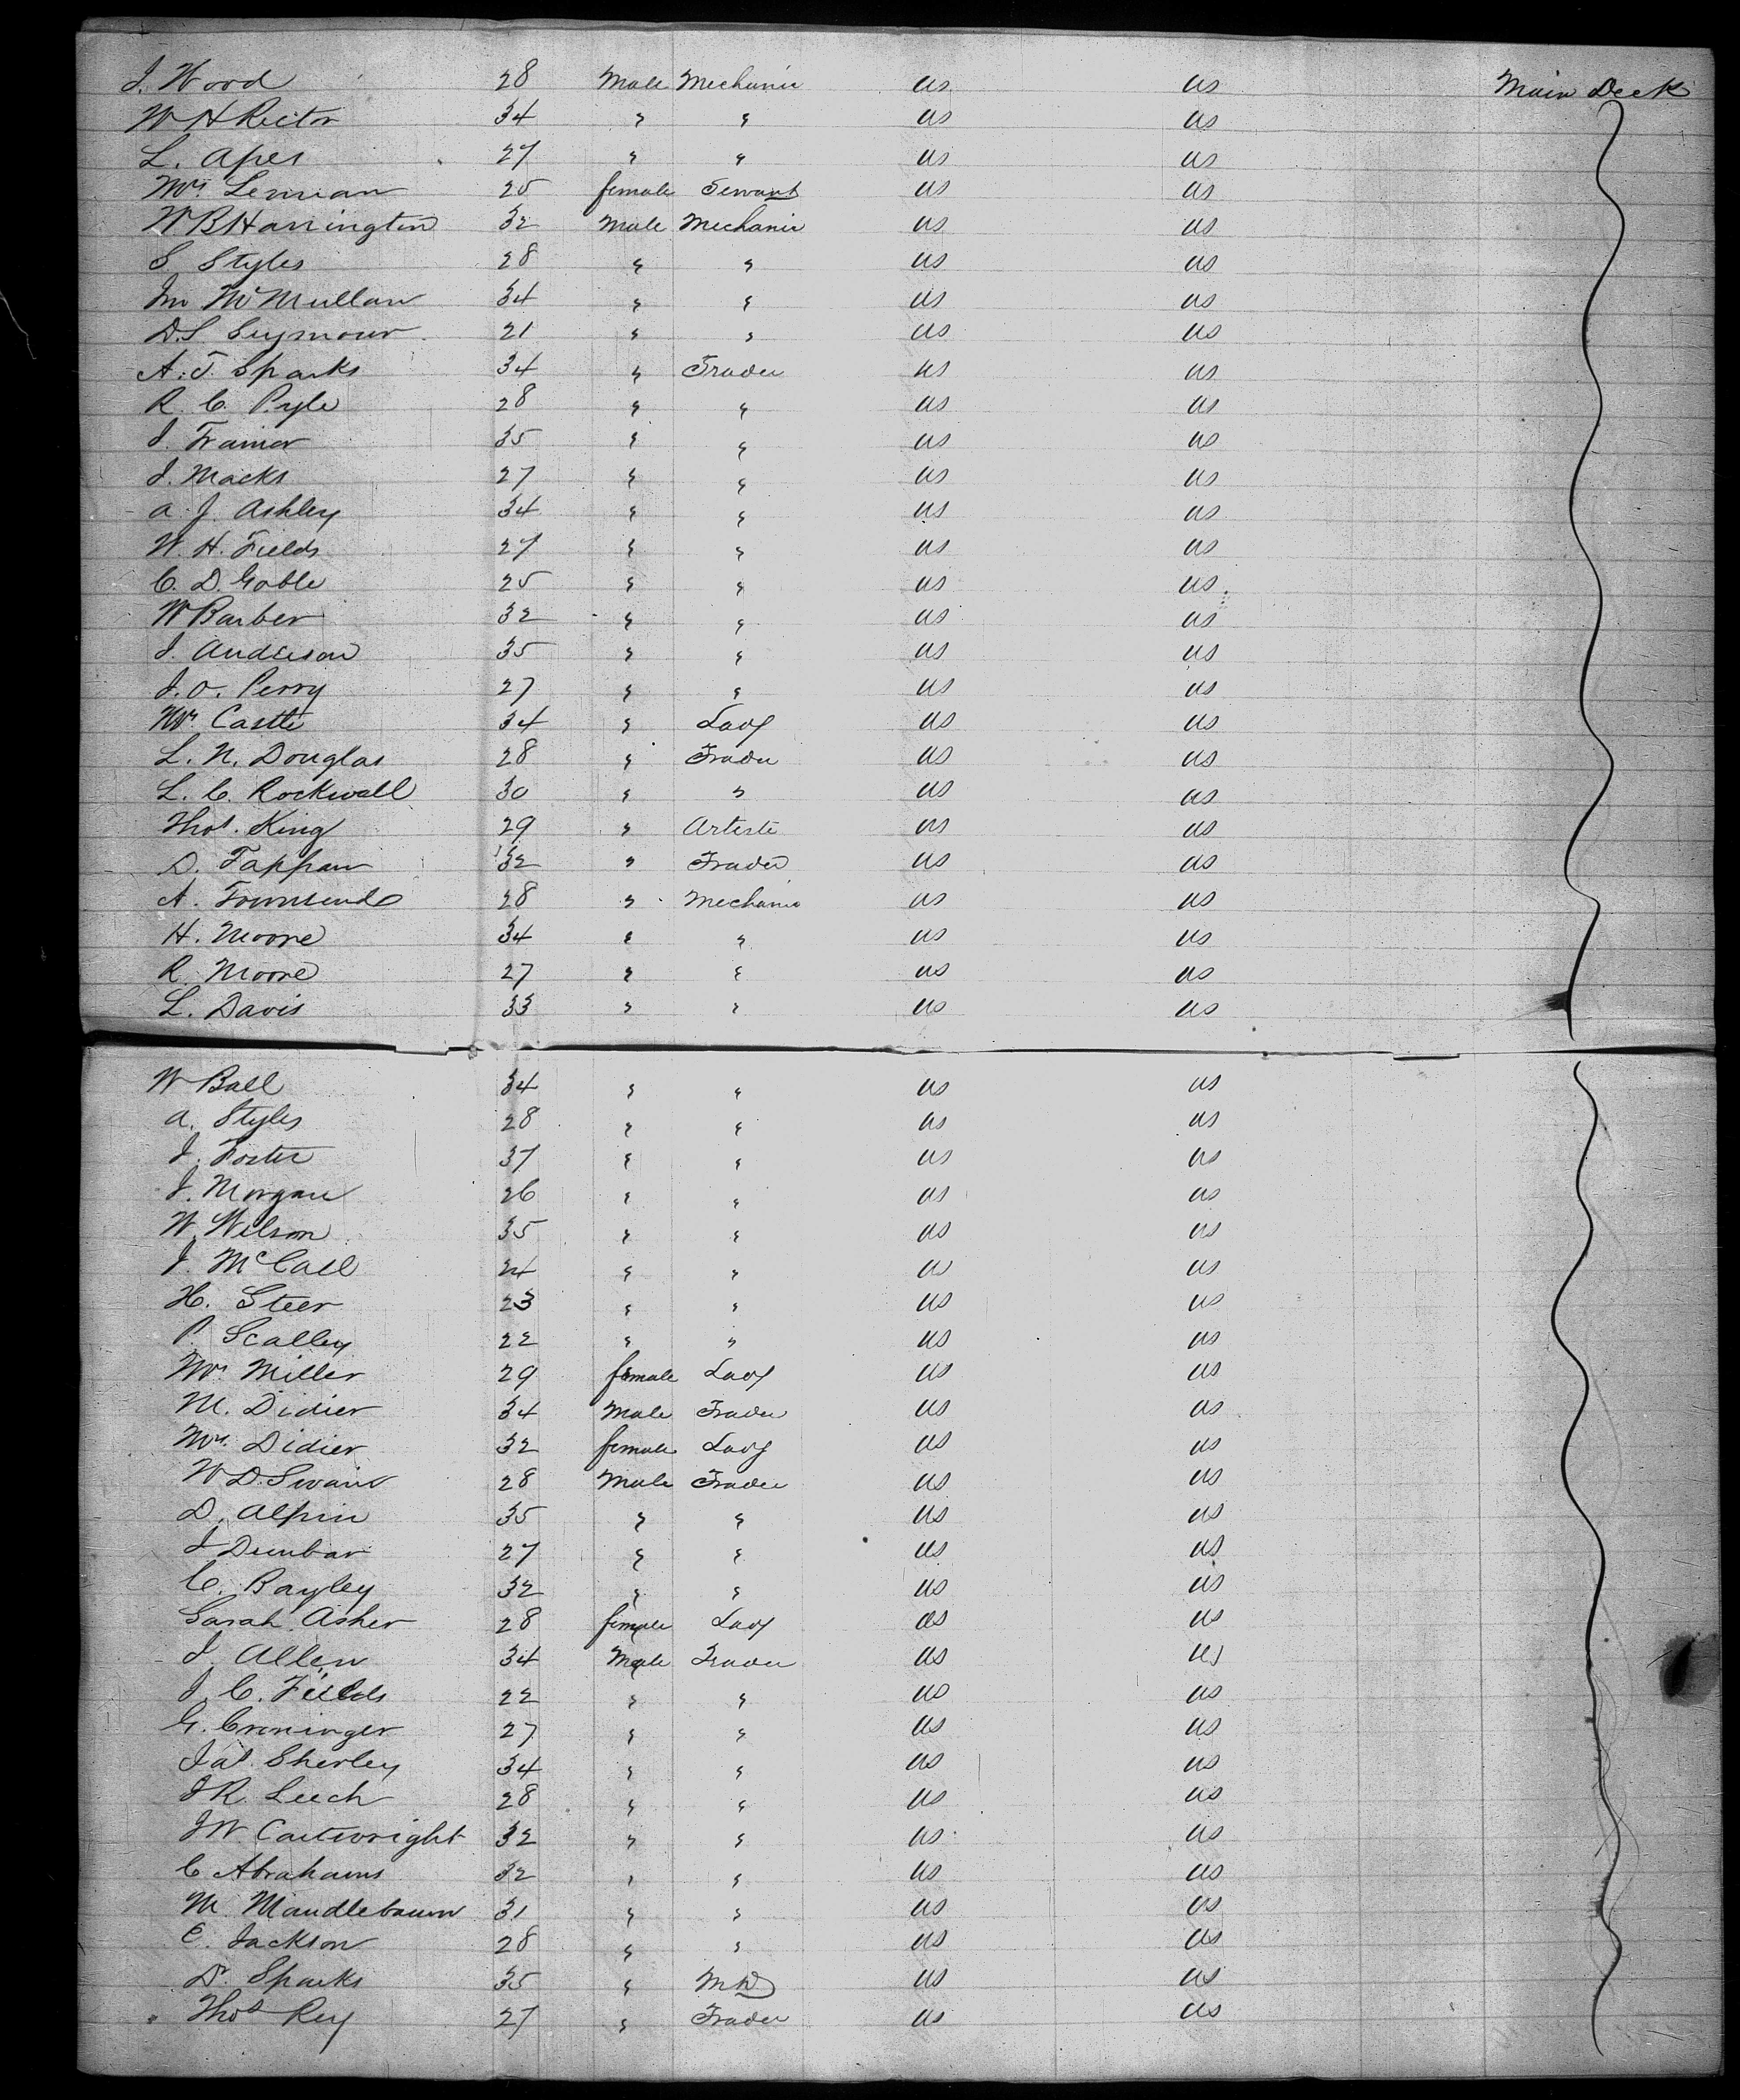 J. Wood 28 Male Mechanic us us Main Deck
W H Rector 34 " " us us
L. Apes 27 " " us us
Mrs Lennan 25 female Servant us us
W B Harrington 32 Male Mechanic us us
S Styles 28 " " us us
Jno McMullan 34 " " us us
D. S Seymour 21 " " us us
A. T. Sparks 34 " Trader us us
R. C. Pyle 28 " " us us
J. Trainor 35 " " us us
J. Macks 27 " " us us
A. J. Ashley 34 " " us us
W. H. Fields 27 " " us us
C. D. Goble 25 " " us us
W Barber 32 " " us us
J. Anderson 35 " " us us
J. O. Perry 27 " " us us
Mrs Castle 34 " Lady us us
L. N. Douglas 28 " Trader us us
L. C. Rockwell 30 " " us us
Thos. King 29 " Artiste us us
D. Tappan 32 " Trader us us
A. Townsend 28 " Mechanic us us
H. Moore 34 " " us us
R Moore 27 " " us us
L. Davis 33 " " us us
W Ball 34 " " us us
A. Styles 28 " " us us
J. Foster 37 " " us us
J. Morgan 26 " " us us
W. Wilson 35 " " us us
J. McCall 24 " " us us
H. Steer 23 " " us us
P. Scalley 22 " " us us
Mrs Miller 29 female Lady us us
M. Didier 34 Male Trader us us
Mrs. Didier 32 female Lady us us
W D. Swain 28 Male Trader us us
D. Alpin 35 " " us us
J Dunbar 27 " " us us
C. Bayley 32 " " us us
Sarah Asher 28 female Lady us us
J. Allen 34 Male Trader us us
J. C. Fields 22 " " us us
G. Croninger 27 " " us us
Jas. Sherley 34 " " us us
J R. Leech 28 " " us us
J W. Cartwright 32 " " us us
C Abrahams 32 " " us us
M. Mandlebaum 31 " " us us
C. Jackson 28 " " us us
Dr. Sparks 35 " M D us us
Thos Rey 27 " Trader us us